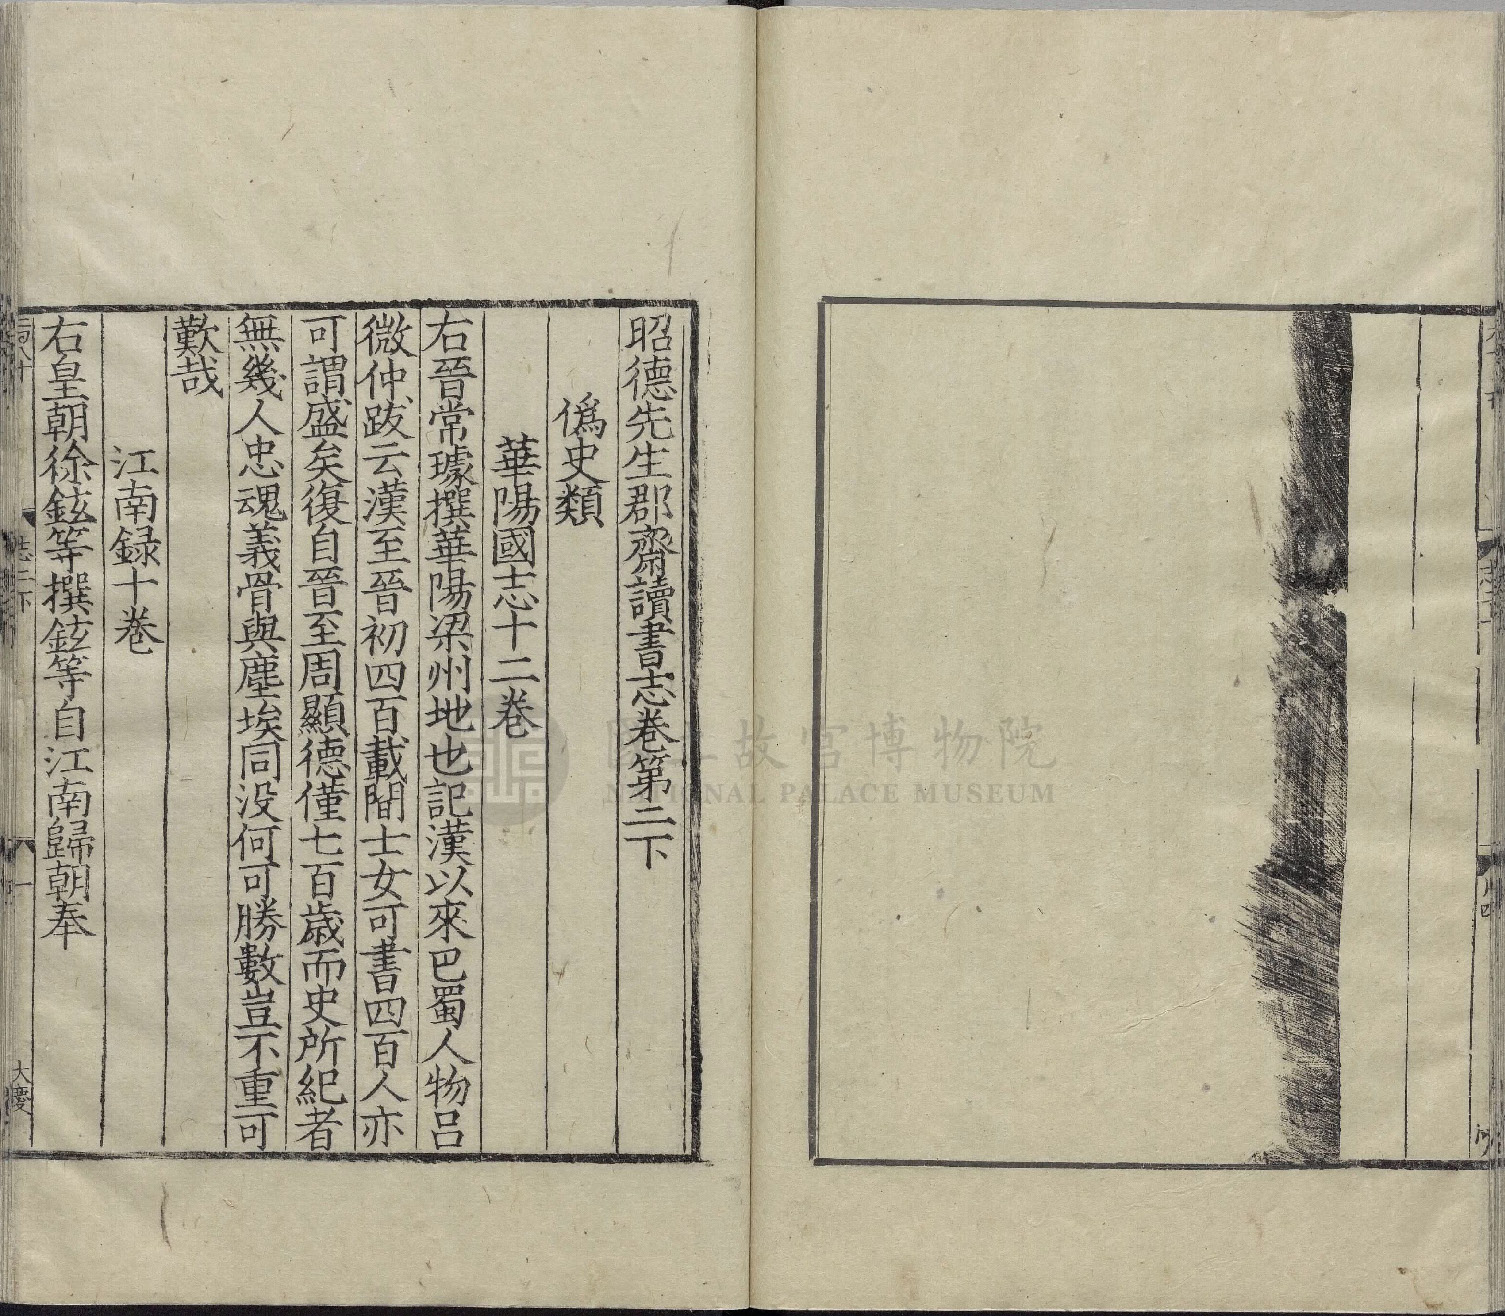 昭德先生郡齋讀書志卷第二下
僞史類
華陽國志十二卷
右晉常璩撰華陽梁州地也記漢以來巴蜀人物呂
微仲跋云漢至晉初四百載間士女可書四百人亦
可謂盛矣復自晉至周顯德僅七百歲而史所紀者
無幾人忠魂義骨與塵埃同没何可勝數豈不重可
歎哉
江南録十卷
右皇朝徐鉉等撰鉉等自江南歸朝奉
志二下
一
大慶
國立故宮博物院
NATIONAL PALACE MUSEUM